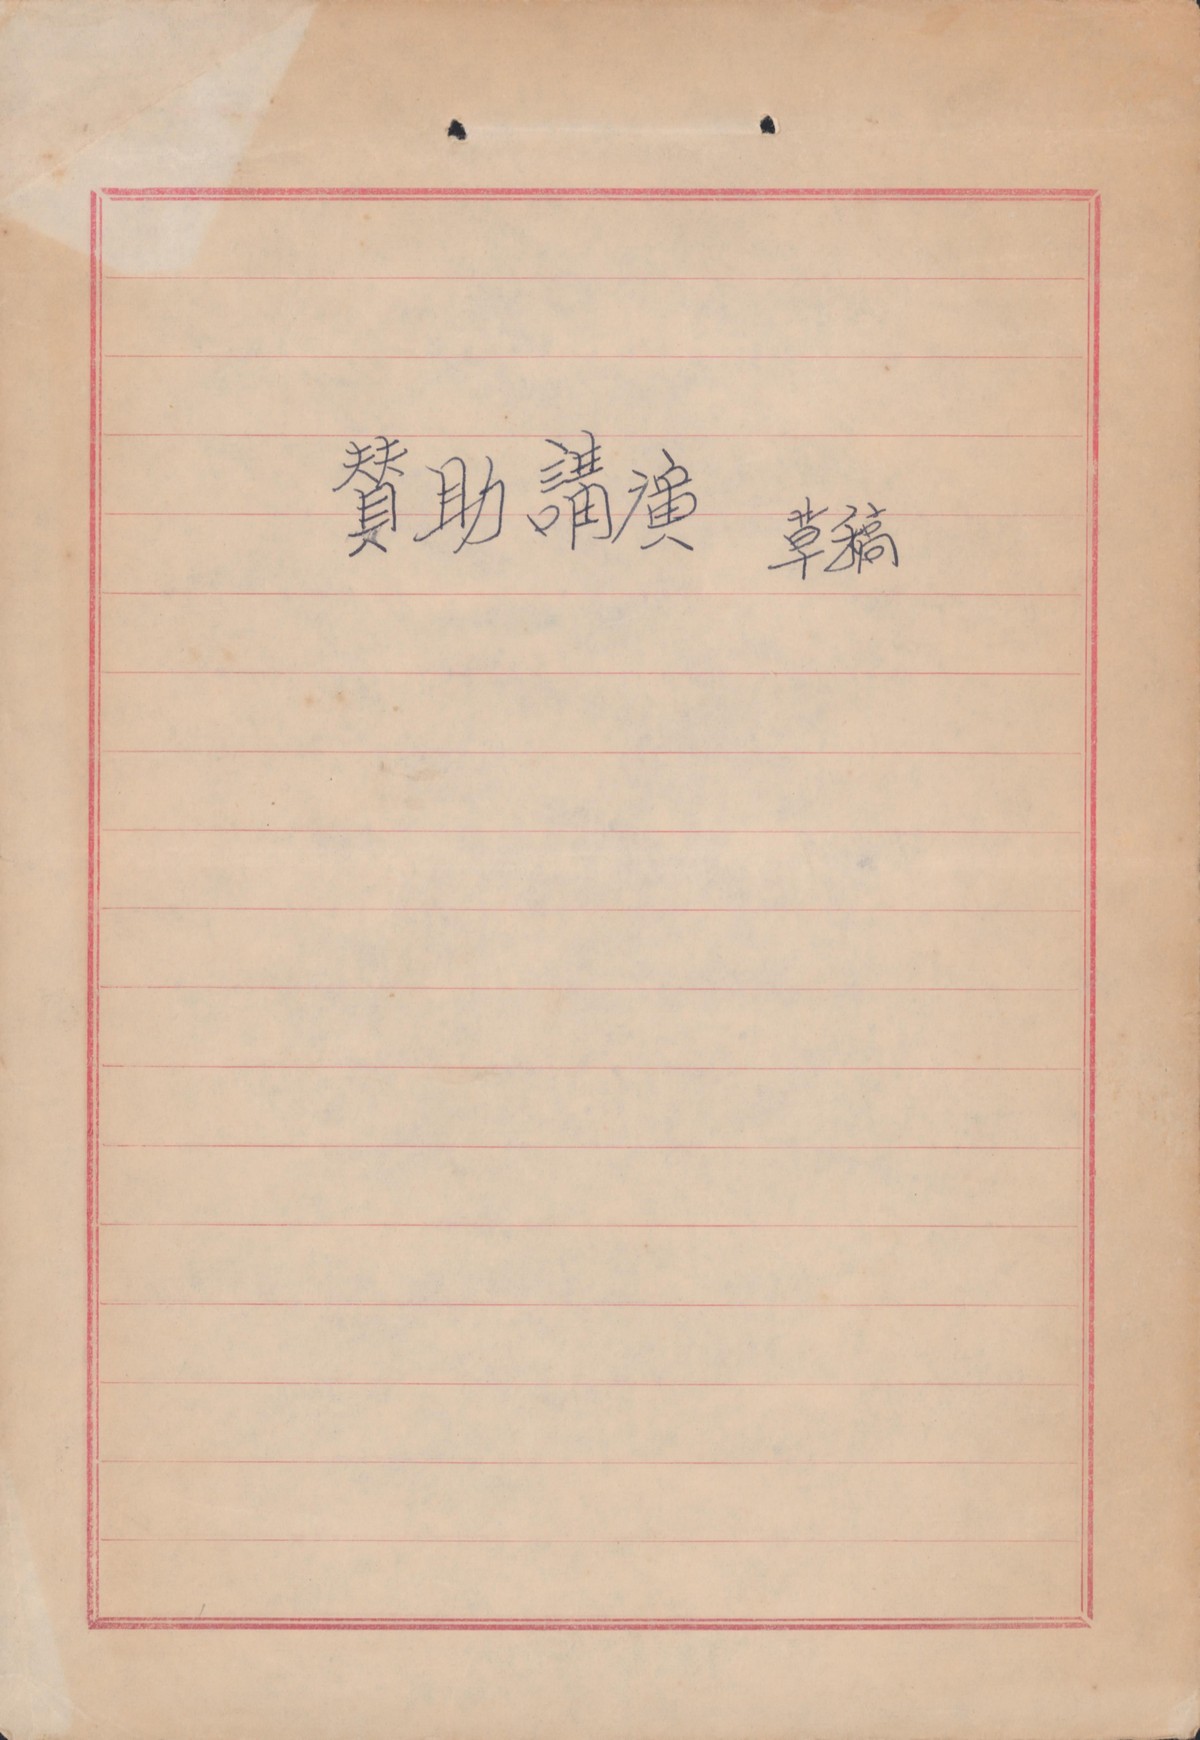 賛助講演 草稿